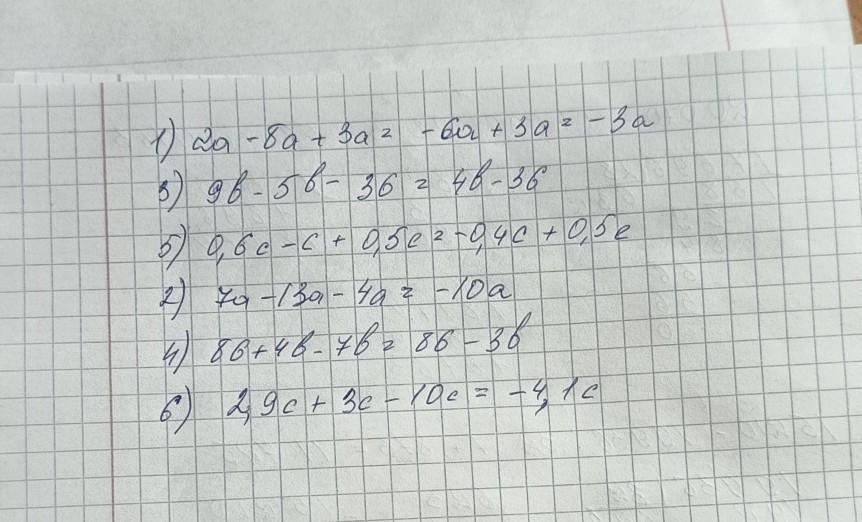 1) 2a - 8a + 3a = -6a + 3a = -3a
3) 9b - 5b - 3b = 4b - 3b
5) 0,6c - c + 0,5c = -0,4c + 0,5c
2) 7a - 13a - 4a = -10a
4) 8b + 4b - 7b = 8b - 3b
6) 2,9c + 3c - 10c = -4,1c